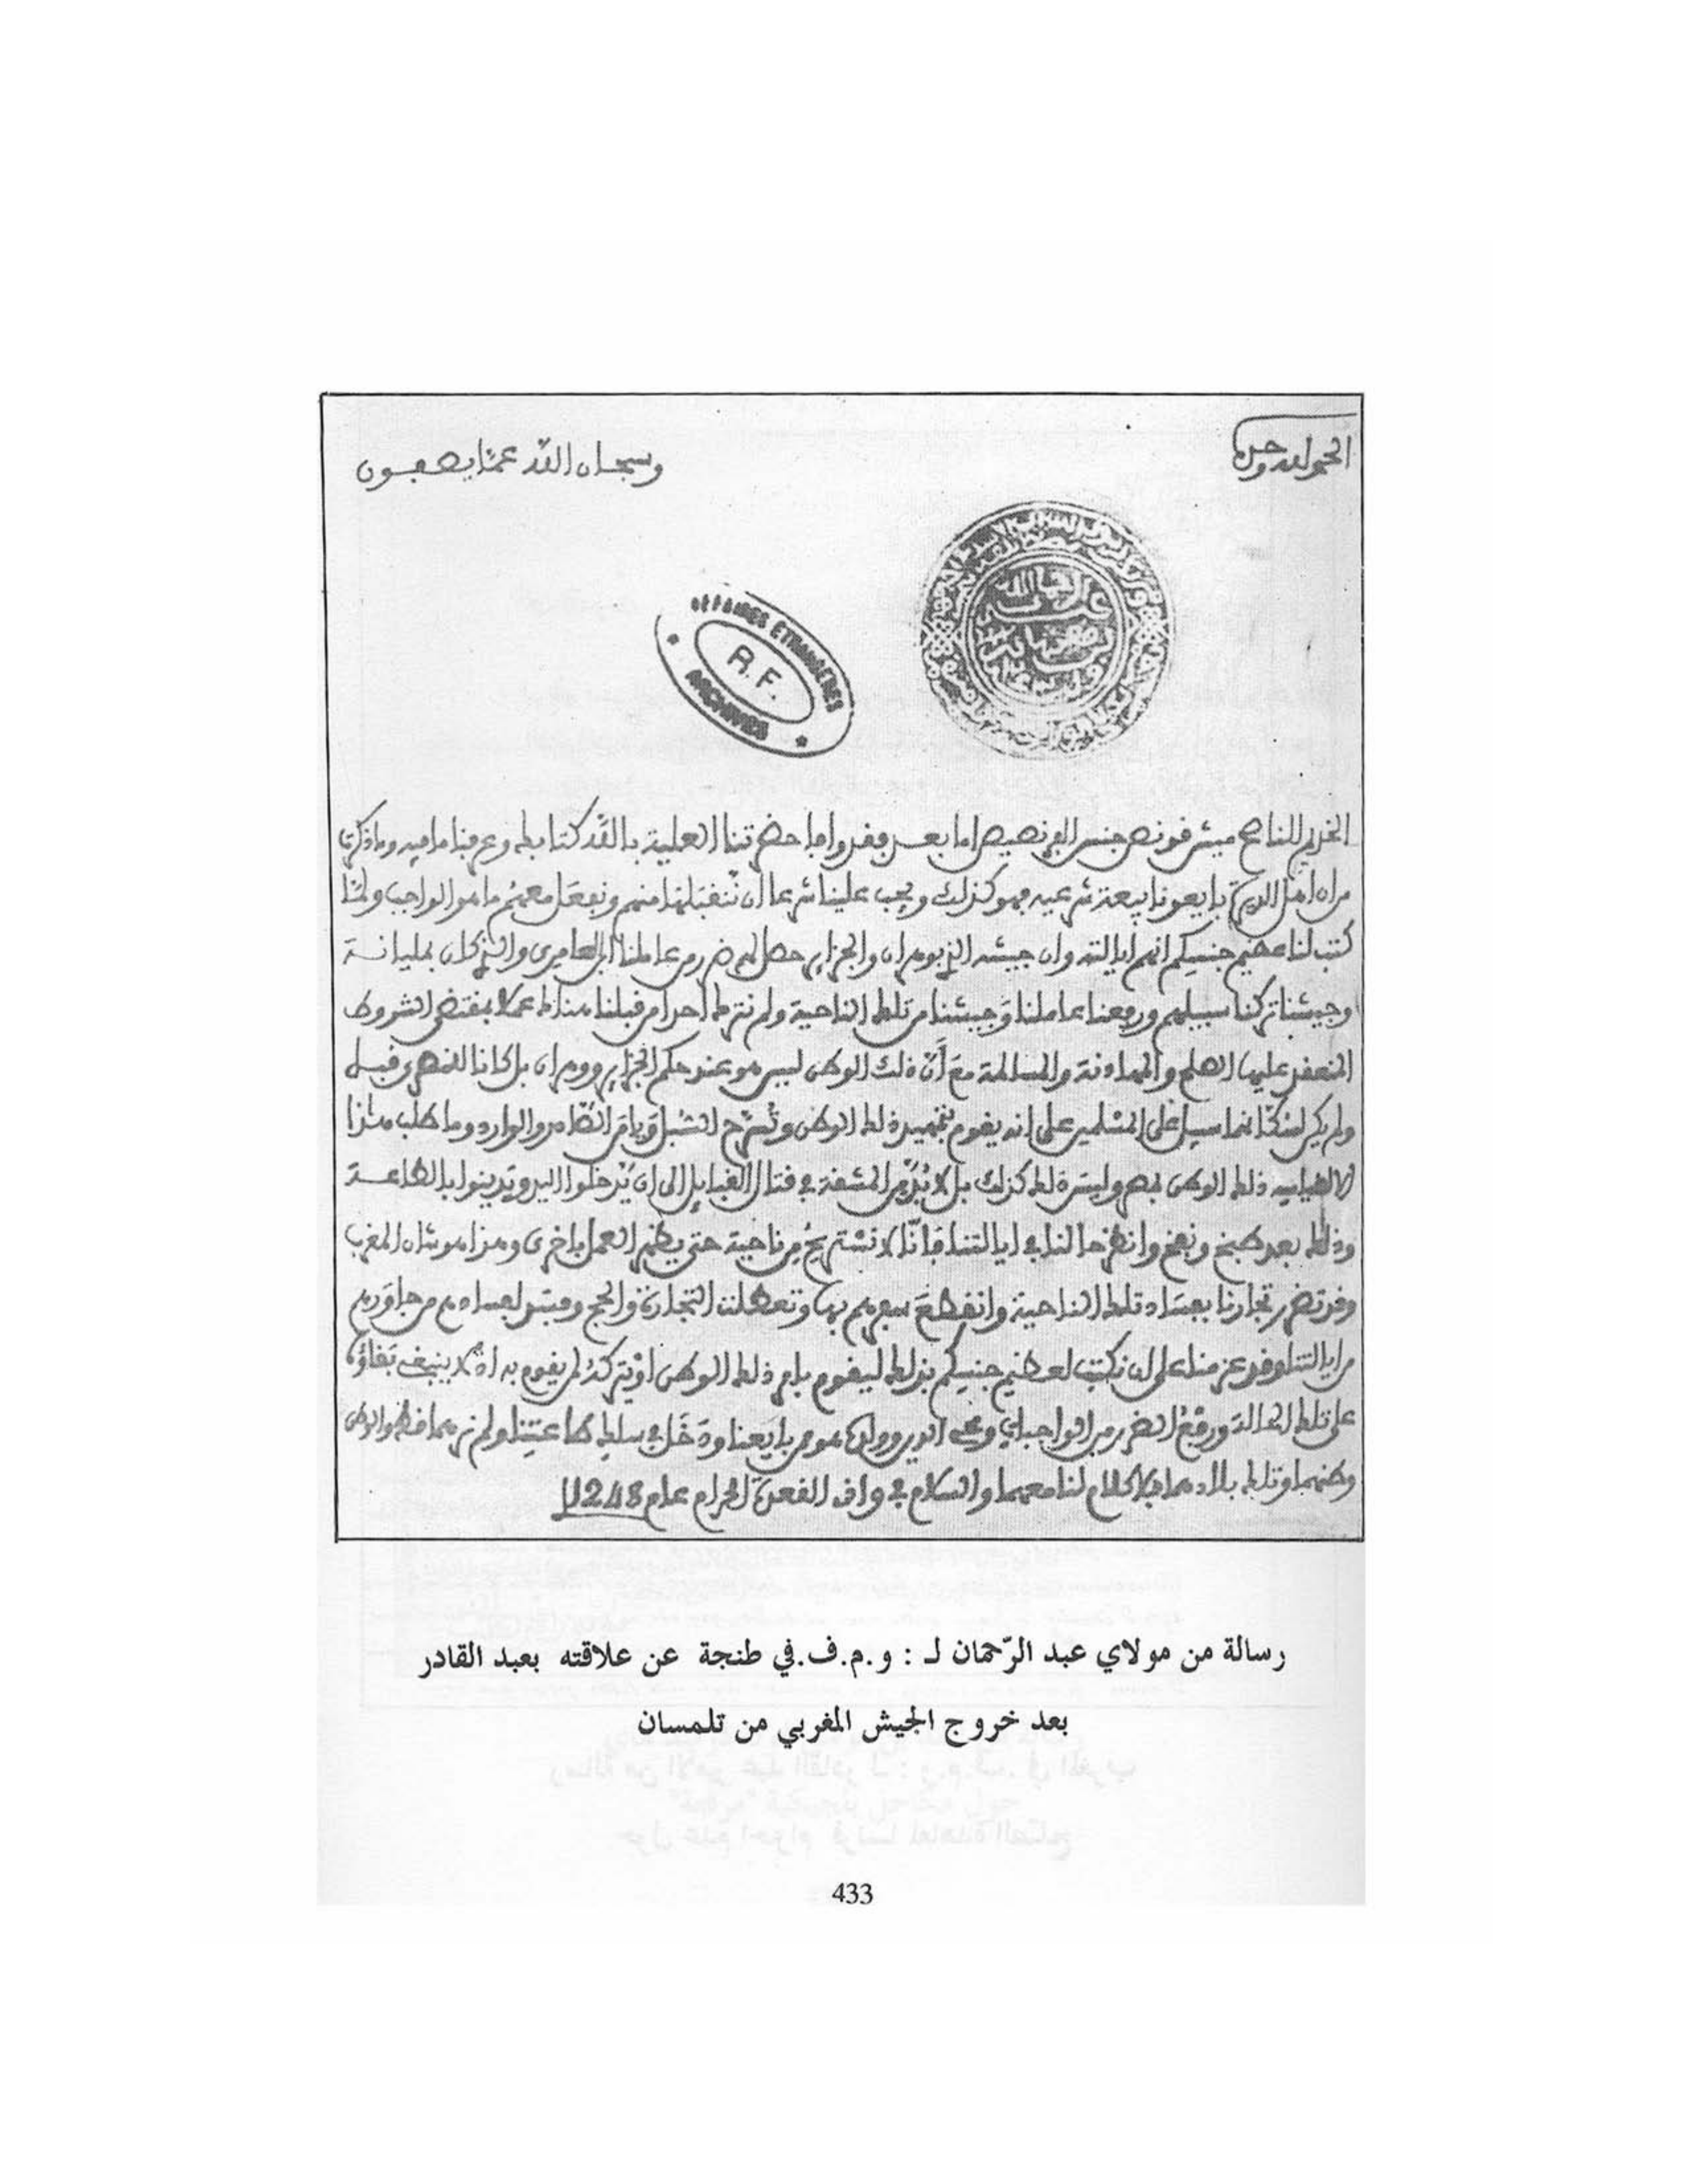 الحمد لله وحده
وسبحان الله عما يصفون
AFFAIRES ETRANGÈRES
R.F.
ARCHIVES
الخديم الناصح ميشر قونص جنس الفرنصيص اما بعد فقد وافا حضرتنا العلية بالله كتابك وعرفنا ما فيه وما ذكرت
من ان اهل بايعونا بيعة شرعيه فهو كذلك ويجب علينا شرعا ان نتقبلها منهم ونفعل معهم ما هو الواجب ولما
كتب لنا عظيم جنسكم انهم ايالته وان جيشه الذي بوهران والجزاير حصل لهم ضرر من عاملنا العامري والذي كان بمليانة
وجيشنا تركنا سبيلهم ورفعنا عاملنا وجيشنا من تلك الناحية ولم نترك احدا من قبلنا هنالك عملا بمقتضى الشروط
المنعقد عليها الصلح والمهادنة والمسالمة مع أن ذلك الوطن ليس هو عند حكم الجزاير ووهران بل كانا للنصرى قبله
ولم يكن لسكانهما سبيل على المسلمين على انه يقوم بتمهيد ذلك الوطن وتسرح السبل ويامن الصادر والوارد وما طلب هذا
ذلك الوطن وليس ذلك كذلك بل لا بد من المشقة في قتال القبايل الى ان يدخلوا اليد ويدينوا بالطاعة
وذلك بعد طبخ ونفخ وانظر حالنا في ايالتنا فإنا لا نستريح من ناحية حتى يظهر العمل باخرى وهذا هو شان المغرب
وقد تضرر تجارنا بفساد تلك الناحية وانقطع سفرهم بها وتعطلت التجارة والحج وفسد لفسادهم من جاورهم
من ايالتنا وقد عزمنا على ان نكتب لعظيم جنسكم بذلك ليقوم بامر ذلك الوطن او يتركه لمن يقوم به اذ لا ينبغي بقاؤه
على تلك الحالة ورفع الضرر من الواجبات ومحي الدين وولده هو ممن بايعنا ودخل في سلك طاعتنا ولم نرهما الوطن
وطنهما وتلك بلادهما فلا كلام لنا معهما والسلام في واف القعدة الحرام عام 1248
رسالة من مولاي عبد الرّحمان لـ : و.م.ف.في طنجة عن علاقته بعبد القادر
بعد خروج الجيش المغربي من تلمسان
433